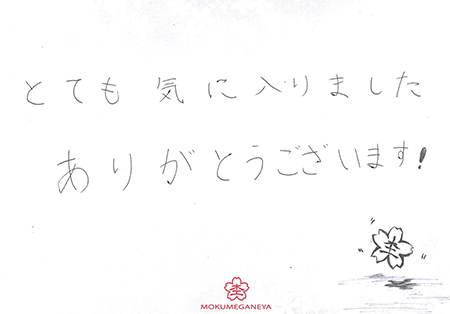 とても気に入りました
ありがとうございます!
MOKUMEGANEYA